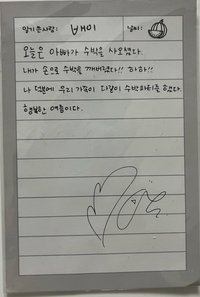 일기 쓴 사람: 배이 날씨:
오늘은 아빠가 수박을 사오셨다.
내가 손으로 수박을 깨버렸다!! 하하!!
나 덕분에 우리 가족이 다같이 수박파티를 했다.
행복한 여름이다.